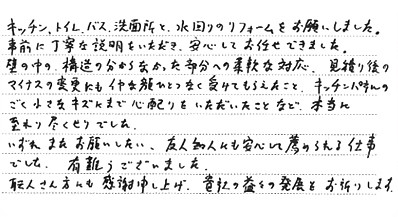 キッチン、トイレ、バス、洗面所と、水回りのリフォームをお願いしました。
事前に丁寧な説明をいただき、安心してお任せできました。
壁の中の構造の分からなかった部分への柔軟な対応、見積り後の
マイナスの変更にも仲な顔ひとつなく受けてもらえたこと、キッチンパネルの
ごく小さなキズにまで心配りをいただいたことなど、本当に
至れり尽くせりでした。
いずれまたお願いしたい、友人知人にも安心して薦められる仕事
でした。有難うございました。
職人さん方にも感謝申し上げ、貴社の益々の発展をお祈りします